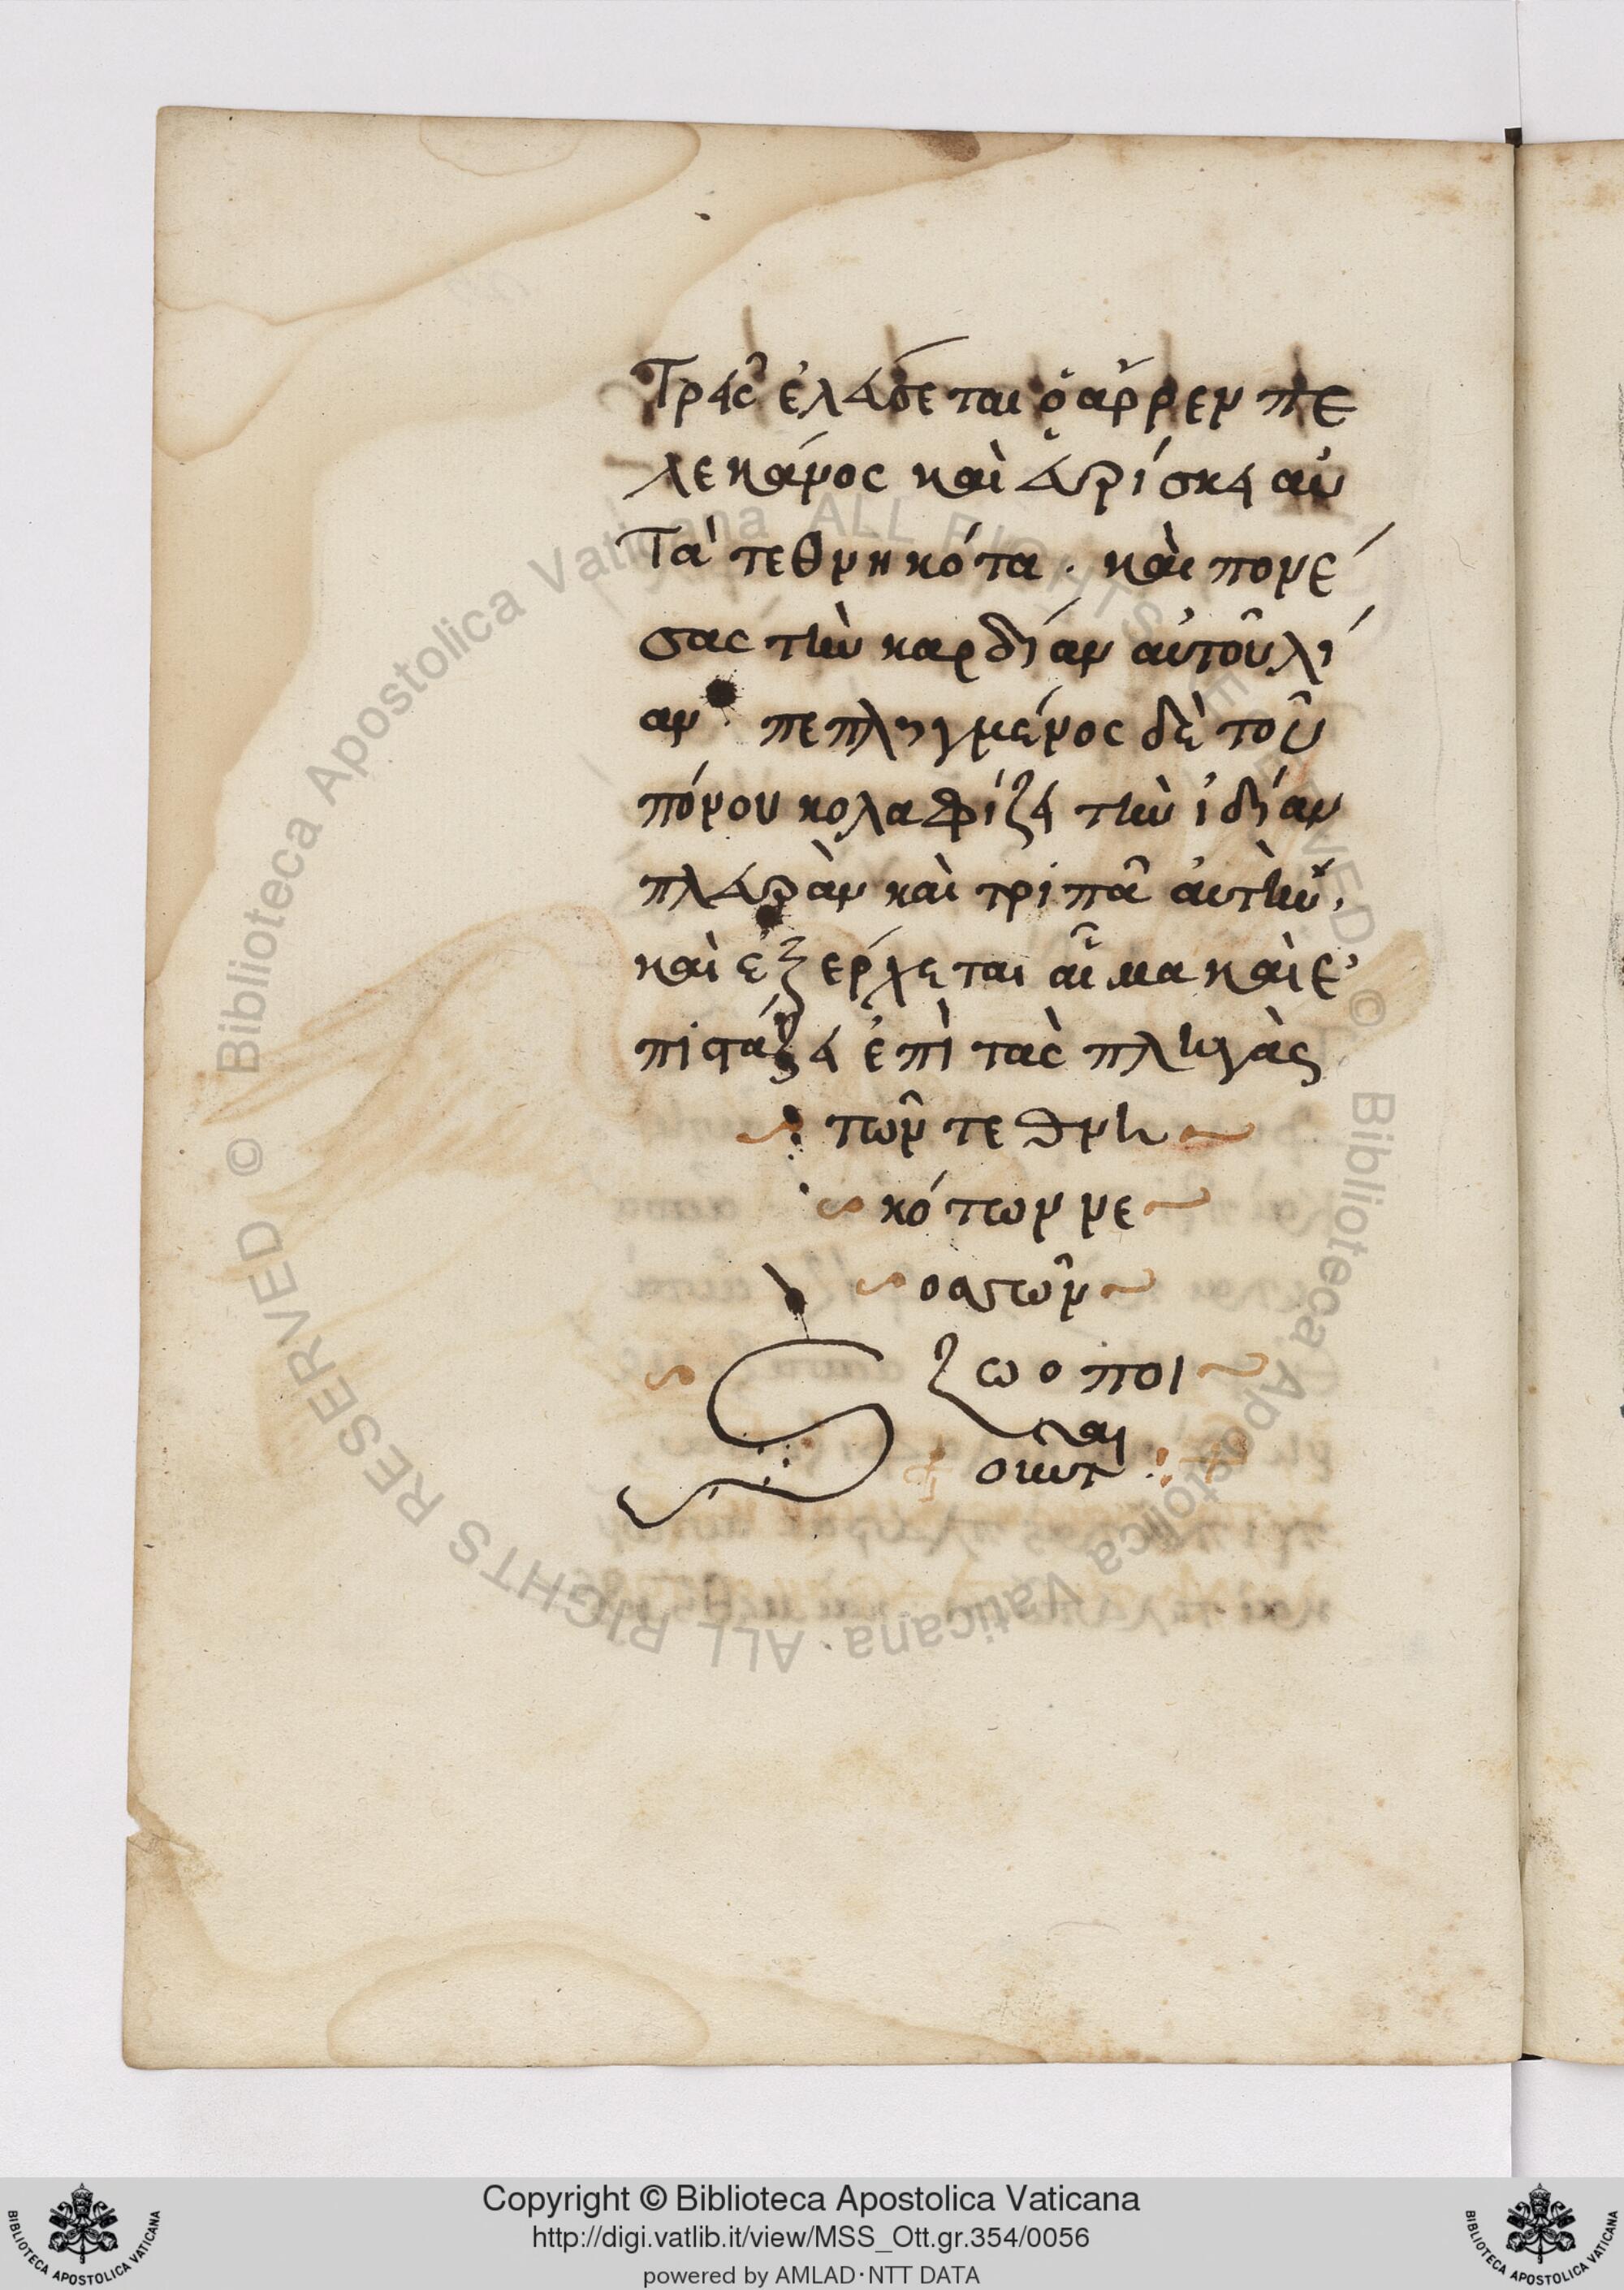 τρεῖς ἐλεύσεται ὁ ἄρρεν πε
λεκάνος καὶ εὑρίσκει αὐ
τὰ τεθνηκότα. καὶ πονέ
σας τὴν καρδίαν αὐτοῦ λί
αν. πεπληγμένος δὲ τοῦ
πόνου κολαφίζει τὴν ἰδίαν
πλευρὰν καὶ τρυπᾶ αὐτὴν,
καὶ ἐξέρχεται αἷμα καὶ ἐ
πιστάζει ἐπὶ τὰς πληγὰς
τῶν τεθνη
κότων νε
οσσῶν
ζωοποι
οῦνται
Copyright © Biblioteca Apostolica Vaticana
http://digi.vatlib.it/view/MSS_Ott.gr.354/0056
powered by AMLAD·NTT DATA
© Biblioteca Apostolica Vaticana ALL RIGHTS RESERVED
© Biblioteca Apostolica Vaticana ALL RIGHTS RESERVED
BIBLIOTECA APOSTOLICA VATICANA
BIBLIOTECA APOSTOLICA VATICANA